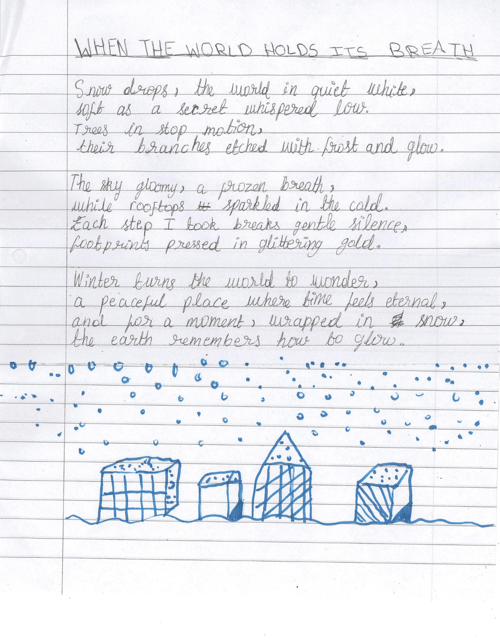 WHEN THE WORLD HOLDS ITS BREATH
Snow drops, the world in quiet white,
soft as a secret whispered low.
Trees in stop motion,
their branches etched with frost and glow.
The sky gloomy, a frozen breath,
while rooftops sparkled in the cold.
Each step I took breaks gentle silence,
footprints pressed in glittering gold.
Winter turns the world to wonder,
a peaceful place where time feels eternal,
and for a moment, wrapped in snow,
the earth remembers how to glow.